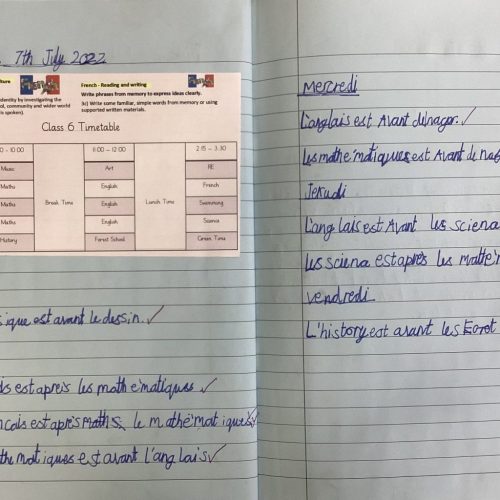 7th July 2022
French - Reading and writing
Write phrases from memory to express ideas clearly.
identity by investigating the
ol, community and wider world
is spoken).
3c) Write some familiar, simple words from memory or using
supported written materials.
Class 6 Timetable
0 - 10:00 11:00 - 12:00 2:15 - 3:30
Music Art RE
Maths English French
Maths Break Time English Lunch Time Swimming
Maths English Science
History Forest School Green Time
ique est avant le dessin.
is est après les mathématiques
ncais est après maths le mathématiques
thematiques est avant l'anglais
Mercredi
L'anglais est Avant de nager.
Les mathématiques est Avant de nag
Jeudi
L'anglais est Avant les sciena
Les sciena est après les mathém
vendredi
L'history est avant les